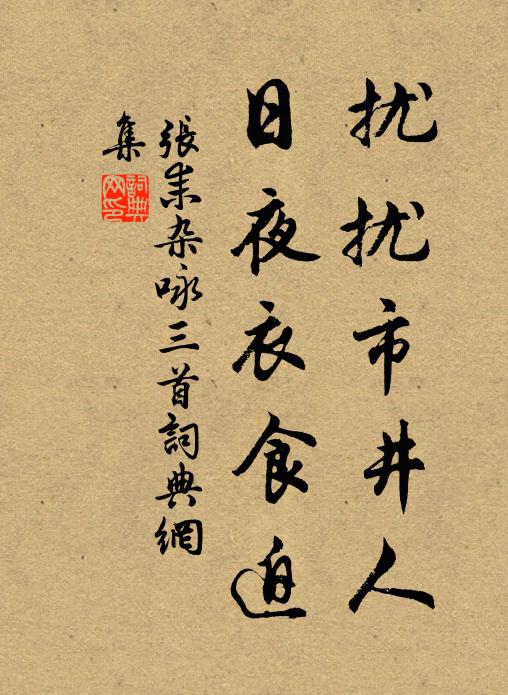 扰扰市井人
日夜衣食迫
張耒杂咏三首詞典網
集
詞典
网印